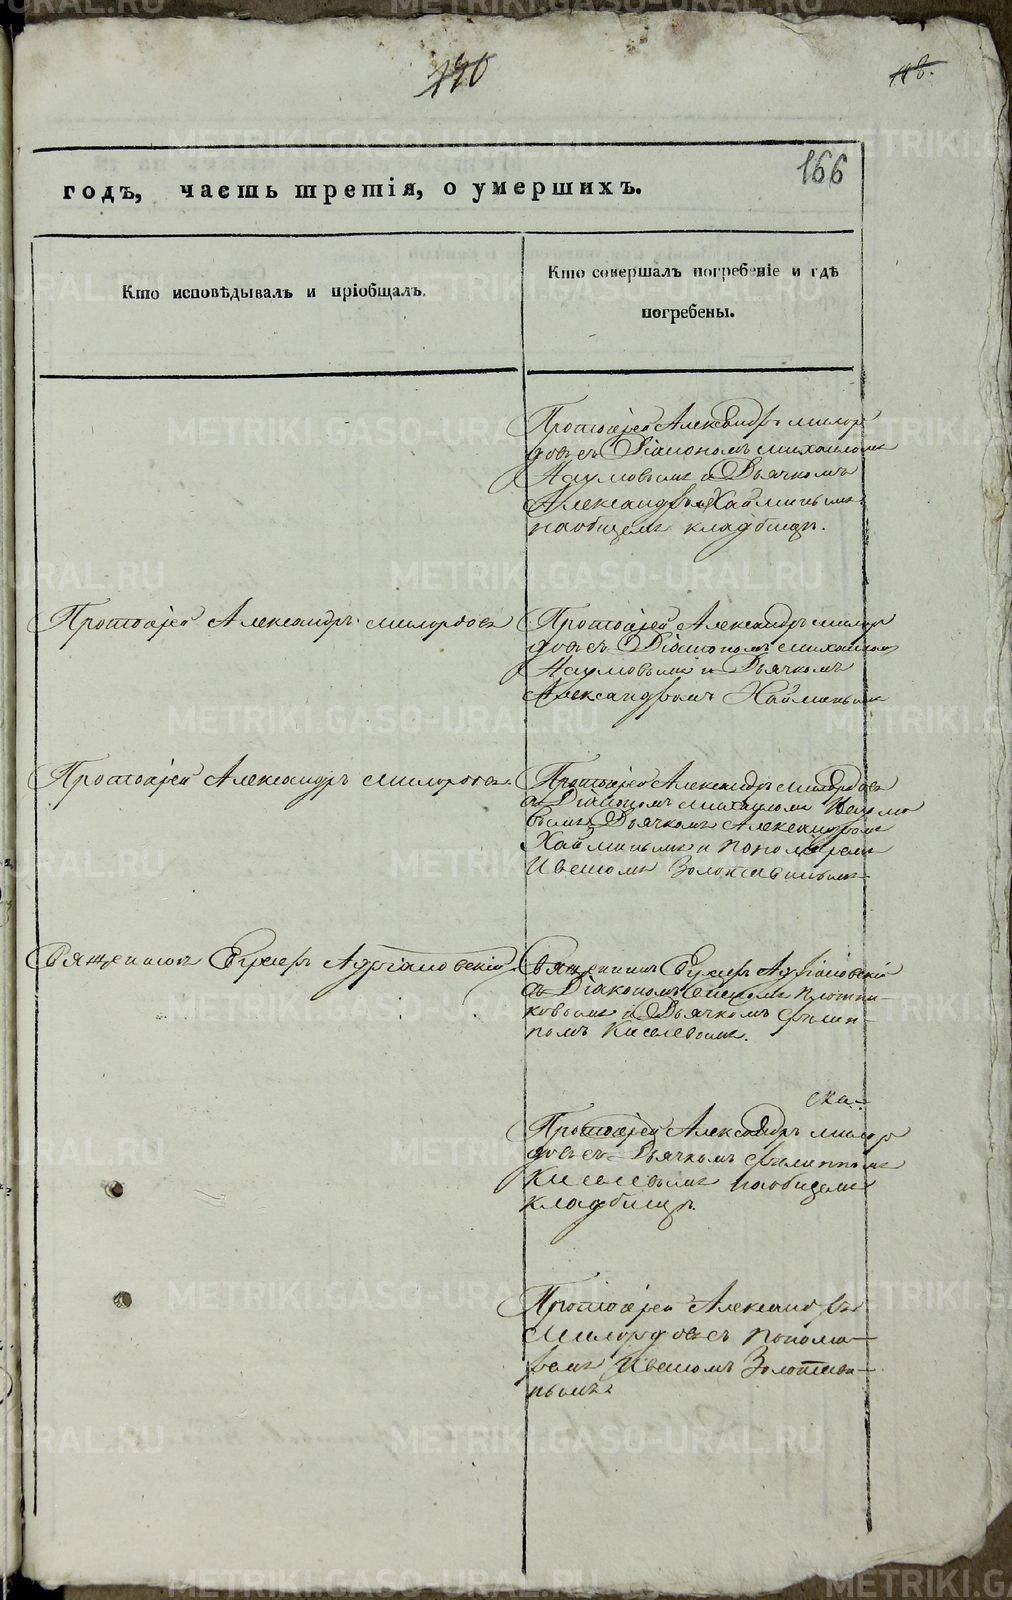 170
118.
166
годъ, часть третія, о умершихъ.
Кто исповѣдывалъ и пріобщалъ.
Кто совершалъ погребеніе и гдѣ
погребены.
Протоіерей Александръ Милор
довъ съ Діакономъ Михаиломъ
Наумовымъ и Дьячкомъ
Александромъ Хайминымъ
на общемъ кладбищѣ.
Протоіерей Александръ Милордовъ
Протоіерей Александръ Милор
довъ съ Діакономъ Михаиломъ
Наумовымъ и Дьячкомъ
Александромъ Хайминымъ
Протоіерей Александръ Милордовъ
Протоіерей Александръ Милордовъ
съ Діакономъ Михаиломъ Наумо
вымъ Дьячкомъ Александромъ
Хайминымъ и Пономаремъ
Иваномъ Золотавинымъ
Священникъ Адріановскій
Священникъ Адріановскій
съ Діакономъ Плотни-
ковымъ и Дьячкомъ Филип-
помъ Киселевымъ.
Протоіерей Александръ Милор
довъ съ Дьячкомъ Филиппомъ
Киселевымъ на общемъ
кладбищѣ.
Протоіерей Александръ
Милордовъ съ Понома-
ремъ Иваномъ Золотави-
нымъ
METRIKI.GASO-URAL.RU